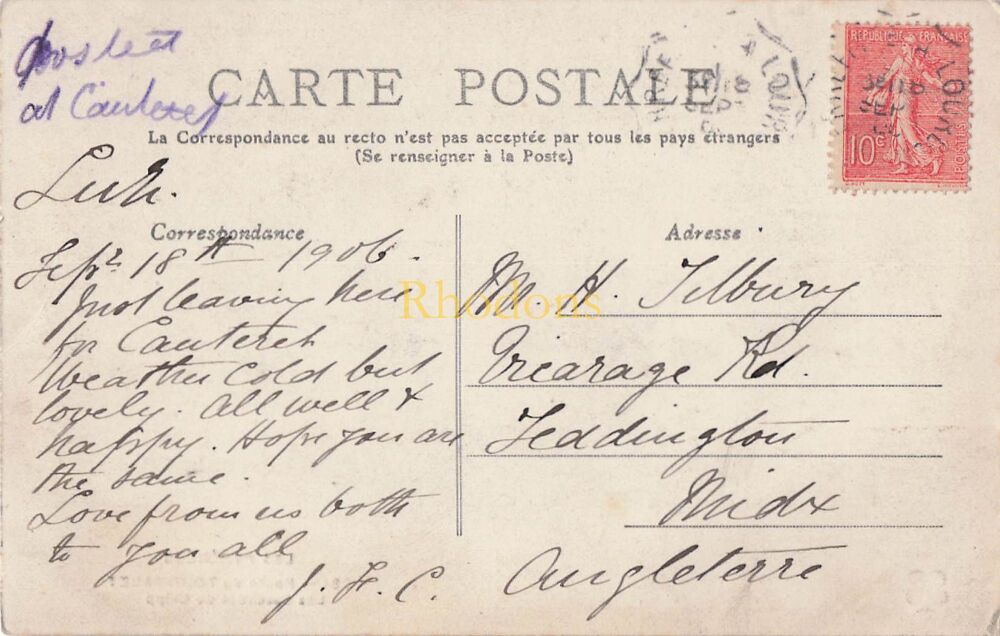 posted
at Cauterets
CARTE POSTALE
La Correspondance au recto n'est pas acceptée par tous les pays étrangers
(Se renseigner à la Poste)
Luz.
Correspondance
Sepr 18th 1906.
Just leaving here
for Cauterets
Weather cold but
lovely. All well &
happy. Hope you are
the same.
Love from us both
to you all
J. F. C.
Adresse
M. H. Tilbury
Vicarage Rd.
Teddington
Midx
Angleterre
REPUBLIQUE FRANÇAISE
10c
POSTES
SEP
Rhodons